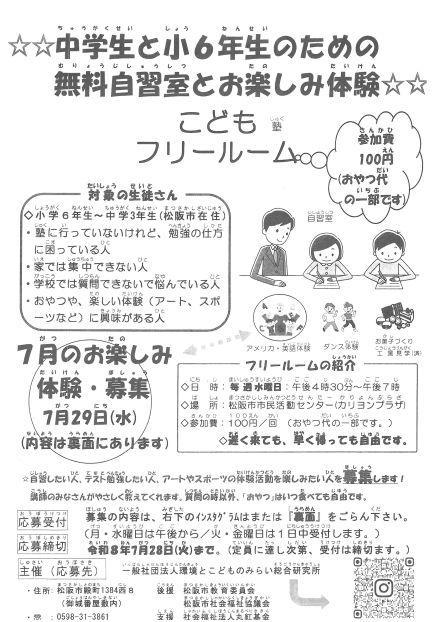 ☆☆中学生と小6年生のための
無料自習室とお楽しみ体験☆☆
こども塾
フリールーム
参加費
100円
(おやつ代
の一部です)
対象の生徒さん
◇小学6年生~中学3年生(松阪市在住)
・塾に行っていないけれど、勉強の仕方
に困っている人
・家では集中できない人
・学校では質問できないで悩んでいる人
・おやつや、楽しい体験(アート、スポ
ーツなど)に興味がある人
自習室
アメリカ・英語体験
ダンス体験
お菓子づくり
工場見学(済)
7月のお楽しみ
体験・募集
7月29日(水)
(内容は裏面にあります)
フリールームの紹介
◇日 時:毎週水曜日:午後4時30分~午後7時
◇場 所:松阪市市民活動センター(カリヨンプラザ)
◇参加費:100円/回 (おやつ代の一部です。)
◇遅く来ても、早く帰っても自由です。
☆自習したい人、テスト勉強したい人、アートやスポーツの体験活動を楽しみたい人を募集します!
講師のみなさんがやさしく教えてくれます。質問の時以外、「おやつ」はいつ食べても自由です。
応募受付
募集の内容は、右下のインスタグラムまたは「裏面」をごらん下さい。
(月・水曜日は午後から/火・金曜日は1日中受付します。)
応募締切
令和8年7月28日(火)まで。(定員に達し次第、受付は締切ます。)
主催(応募先)
一般社団法人環境とこどものみらい総合研究所
・住所:松阪市殿町1384西8
(御城番屋敷内)
・☎:0598-31-3861
後援 松阪市教育委員会
松阪市社会福祉協議会
支援 社会福祉法人丸紅基金